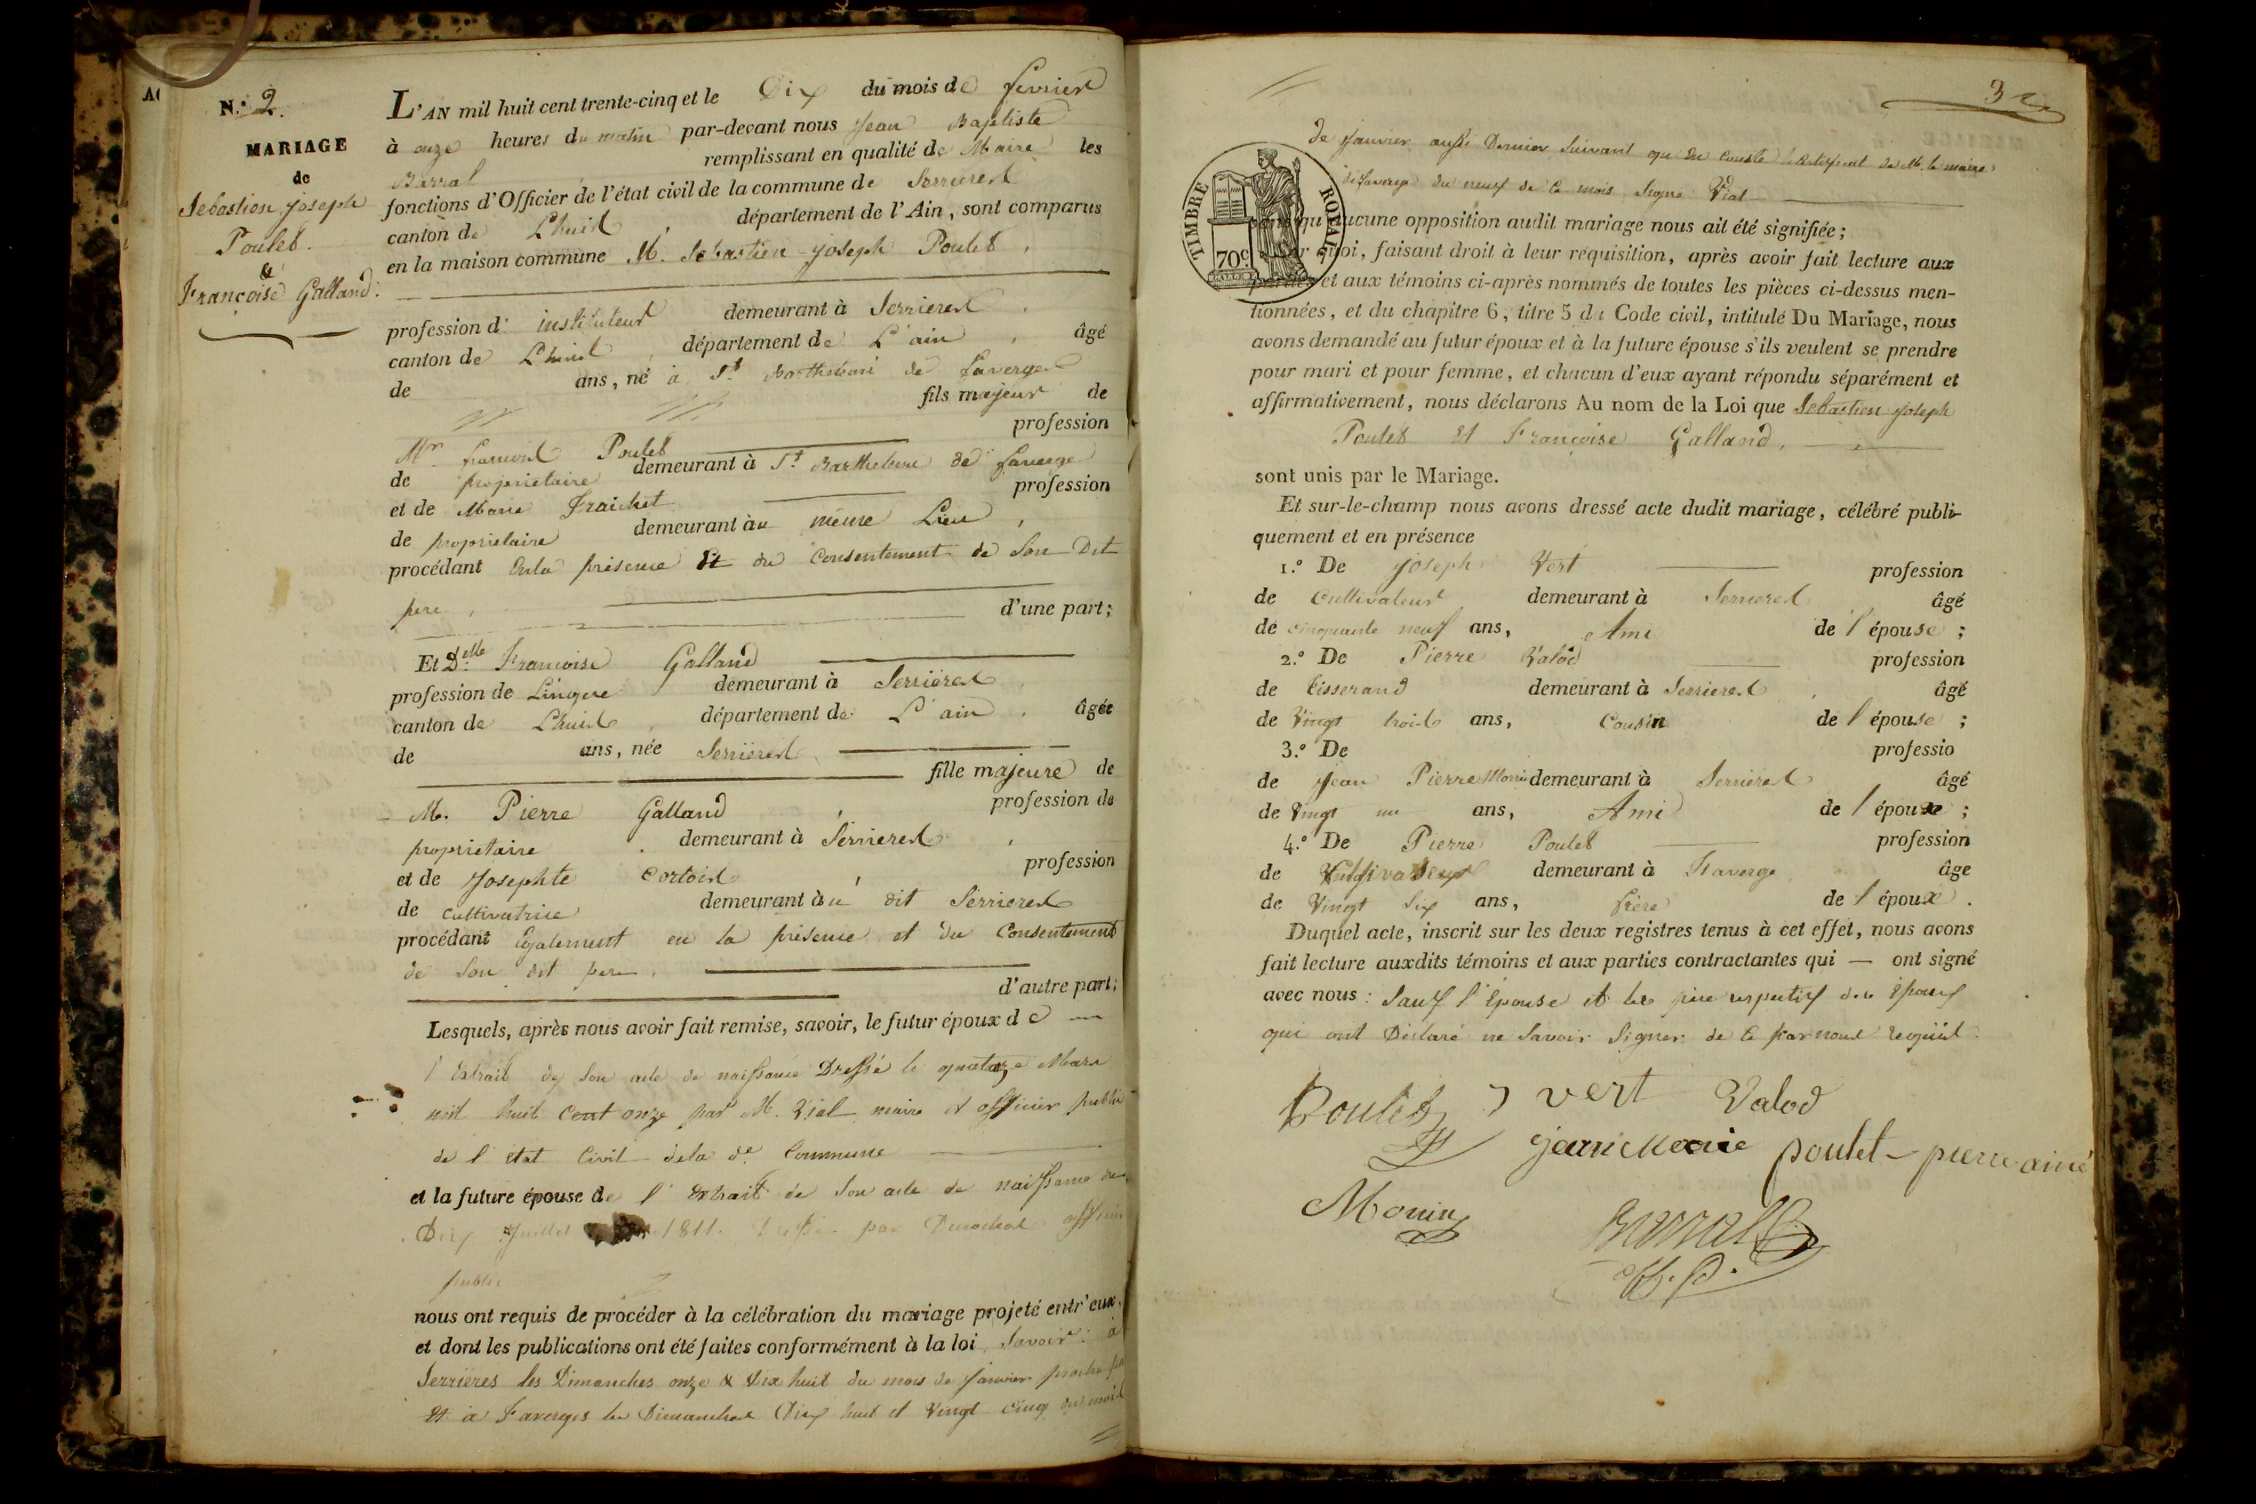 N.º 2.
MARIAGE
de
Sebastien Joseph
Poulet.
&
Françoise Galland.
L'AN mil huit cent trente-cinq et le Dix du mois de fevrier
à onze heures du matin par-devant nous Jean Baptiste
Barral remplissant en qualité de Maire les
fonctions d'Officier de l'état civil de la commune de Serrieres
canton de L'huis, département de l'Ain, sont comparus
en la maison commune M. Sebastien Joseph Poulet,
profession d' instituteur demeurant à Serrieres,
canton de L'huis, département de L'ain, âgé
de ans, né à St Barthelemi de faverges
fils majeur de
Mr francois Poulet profession
de proprietaire demeurant à St Barthelemi de faverge
et de Marie Fraichet profession
de proprietaire demeurant au même Lieu,
procédant En la présence Et du Consentement de Son Dit
pere, d'une part;
Et Delle Francoise Galland
profession de Lingere demeurant à Serrieres,
canton de L'huis, département de L'ain, âgée
de ans, née Serrieres
fille majeure de
M. Pierre Galland, profession de
proprietaire demeurant à Serrieres,
et de Josephte Cortois profession
de cultivatrice demeurant au dit Serrieres
procédant Egalement en la présence et du Consentement
de Son dit pere, d'autre part;
Lesquels, après nous avoir fait remise, savoir, le futur époux de
l'Extrait de Son acte de naissance Dressé le quatorze Mars
mil huit Cent onze par M. Vial maire et officier public
de l'état Civil de la de Commune
et la future épouse de l'Extrait de Son acte de naissance du
Dix Juillet 1811. par officier
public
nous ont requis de procéder à la célébration du mariage projeté entr'eux,
et dont les publications ont été faites conformément à la loi Savoir: à
Serrières les Dimanches onze & dix huit du mois de Janvier proche
Et à Faverges les Dimanches Dix huit et Vingt cinq du mois
3
de Janvier aussi Dernier Suivant que du Conste le Certificat de M. le maire
de faverge du neuf de Ce mois Signé Vial
TIMBRE ROYAL
70c
sans qu'aucune opposition audit mariage nous ait été signifiée;
Sur quoi, faisant droit à leur réquisition, après avoir fait lecture aux
parties et aux témoins ci-après nommés de toutes les pièces ci-dessus men-
tionnées, et du chapitre 6, titre 5 du Code civil, intitulé Du Mariage, nous
avons demandé au futur époux et à la future épouse s'ils veulent se prendre
pour mari et pour femme, et chacun d'eux ayant répondu séparément et
affirmativement, nous déclarons Au nom de la Loi que Sebastien Joseph
Poulet Et Françoise Galland,
sont unis par le Mariage.
Et sur-le-champ nous avons dressé acte dudit mariage, célébré publi-
quement et en présence
1.º De Joseph Vert profession
de Cultivateur demeurant à Serrieres âgé
de cinquante neuf ans, Ami de l'épouse;
2.º De Pierre Valod profession
de tisserand demeurant à Serrieres, âgé
de Vingt trois ans, Cousin de l'épouse;
3.º De professio
de Jean Pierre Monin demeurant à Serrieres âgé
de Vingt un ans, Ami de l'époux;
4.º De Pierre Poulet profession
de Cultivateur demeurant à Faverge âgé
de Vingt Six ans, frère de l'époux.
Duquel acte, inscrit sur les deux registres tenus à cet effet, nous avons
fait lecture auxdits témoins et aux parties contractantes qui — ont signé
avec nous: Sauf l'Epouse et les père respectif des Epoux
qui ont Déclaré ne Savoir Signer de Ce par nous requis.
Poulet J vert Valod
poulet pierre ainé
Monin Barral